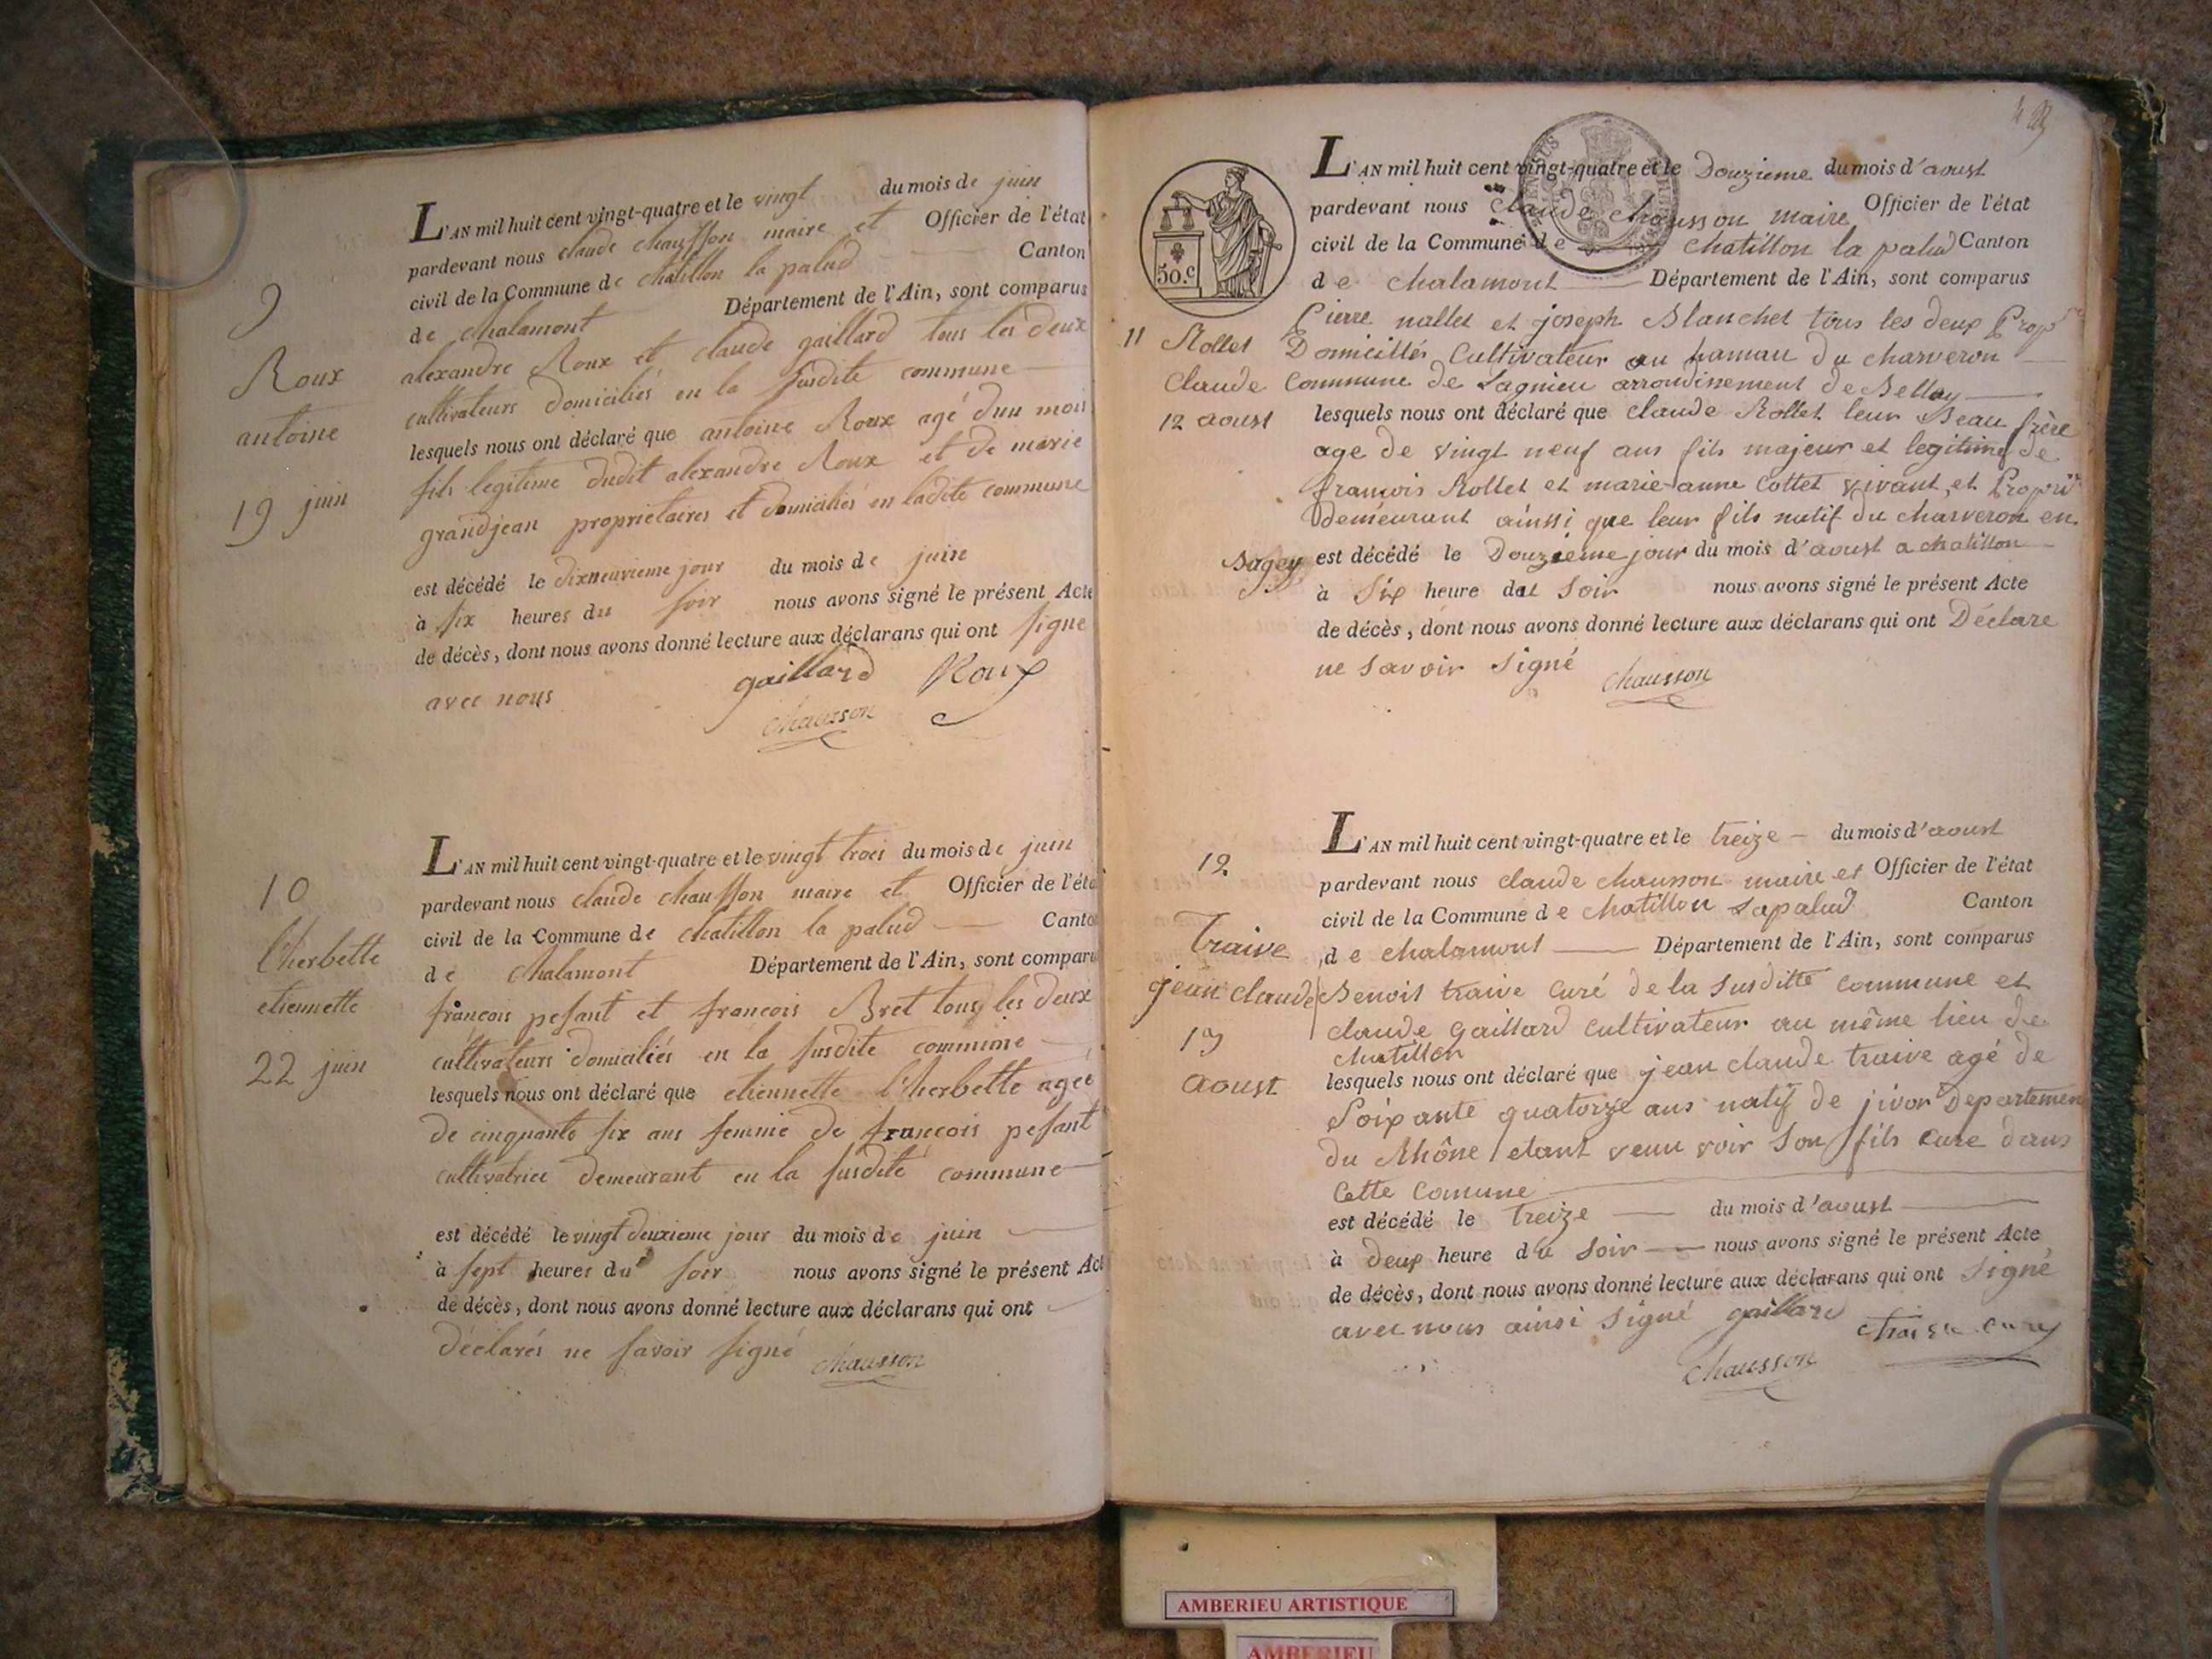 9
Roux
antoine
19 juin
L'AN mil huit cent vingt-quatre et le vingt du mois de juin
pardevant nous claude chausson maire et Officier de l'état
civil de la Commune de chatillon la palud Canton
de chalamont Département de l'Ain, sont comparus
alexandre Roux et claude gaillard tous les deux
cultivateurs domiciliés en la susdite commune
lesquels nous ont déclaré que antoine Roux agé d'un mois
fils legitime dudit alexandre Roux et de marie
grandjean proprietaires et domiciliés en ladite commune
est décédé le dixneuvieme jour du mois de juin
à six heures du soir nous avons signé le présent Acte
de décès, dont nous avons donné lecture aux déclarans qui ont signé
avec nous gaillard Roux
chausson
10
l'herbette
etiennette
22 juin
L'AN mil huit cent vingt-quatre et le vingt trois du mois de juin
pardevant nous claude chausson maire et Officier de l'éta
civil de la Commune de chatillon la palud Canto
de chalamont Département de l'Ain, sont comparu
françois pesant et francois Bret tous les deux
cultivateurs domiciliés en la susdite commune
lesquels nous ont déclaré que etiennette l'herbette agée
de cinquante six ans femme de françois pesant
cultivatrice demeurant en la susdite commune
est décédé le vingt deuxieme jour du mois de juin
à sept heures du soir nous avons signé le présent Act
de décès, dont nous avons donné lecture aux déclarans qui ont
déclarés ne savoir signé chausson
50.c
11 Rollet
Claude
12 aoust
L'AN mil huit cent vingt-quatre et le Douzieme du mois d'aoust
pardevant nous claude chausson maire Officier de l'état
civil de la Commune de chatillon la palud Canton
de chalamont Département de l'Ain, sont comparus
Pierre nallet et joseph Blanchet tous les deux Propre
Domiciliés Cultivateur au hamau du charveron
Commune de Lagnieu arrondissement de Belley
lesquels nous ont déclaré que claude Rollet leur Beau frère
age de vingt neuf ans fils majeur et legitime de
francois Rollet et marie-anne Cottet vivant et Propri
Demeurant ainssi que leur fils natif du charveron en
Bugey est décédé le Douzième jour du mois d'aoust a chatillon
à Six heure du Soir nous avons signé le présent Acte
de décès, dont nous avons donné lecture aux déclarans qui ont Déclare
ne savoir signé chausson
12
Traive
jean claude
13
aoust
L'AN mil huit cent vingt-quatre et le treize du mois d'aoust
pardevant nous claude chausson maire et Officier de l'état
civil de la Commune de chatillon Lapalud Canton
de chalamont Département de l'Ain, sont comparus
Benoit traive curé de la susditte commune et
claude gaillard cultivateur au même lieu de
chatillon
lesquels nous ont déclaré que jean claude traive agé de
Soixante quatorze ans natif de jivor Departemen
du Rhône etant venu voir son fils cure dans
cette comune
est décédé le treize du mois d'aoust
à deux heure du Soir nous avons signé le présent Acte
de décès, dont nous avons donné lecture aux déclarans qui ont signé
avec nous ainsi signé gaillard
chausson
AMBERIEU ARTISTIQUE
AMBERIEU